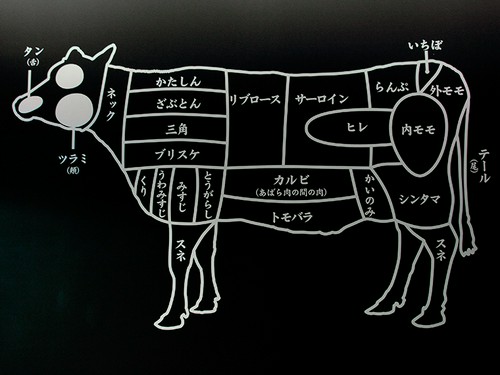 タン
(舌)
ツラミ
(頬)
ネック
かたしん
ざぶとん
三角
ブリスケ
リブロース
サーロイン
ヒレ
らんぷ
いちぼ
外モモ
内モモ
テール
(尾)
くり
うわみすじ
みすじ
とうがらし
カルビ
(あばら肉の間の肉)
トモバラ
かいのみ
シンタマ
スネ
スネ